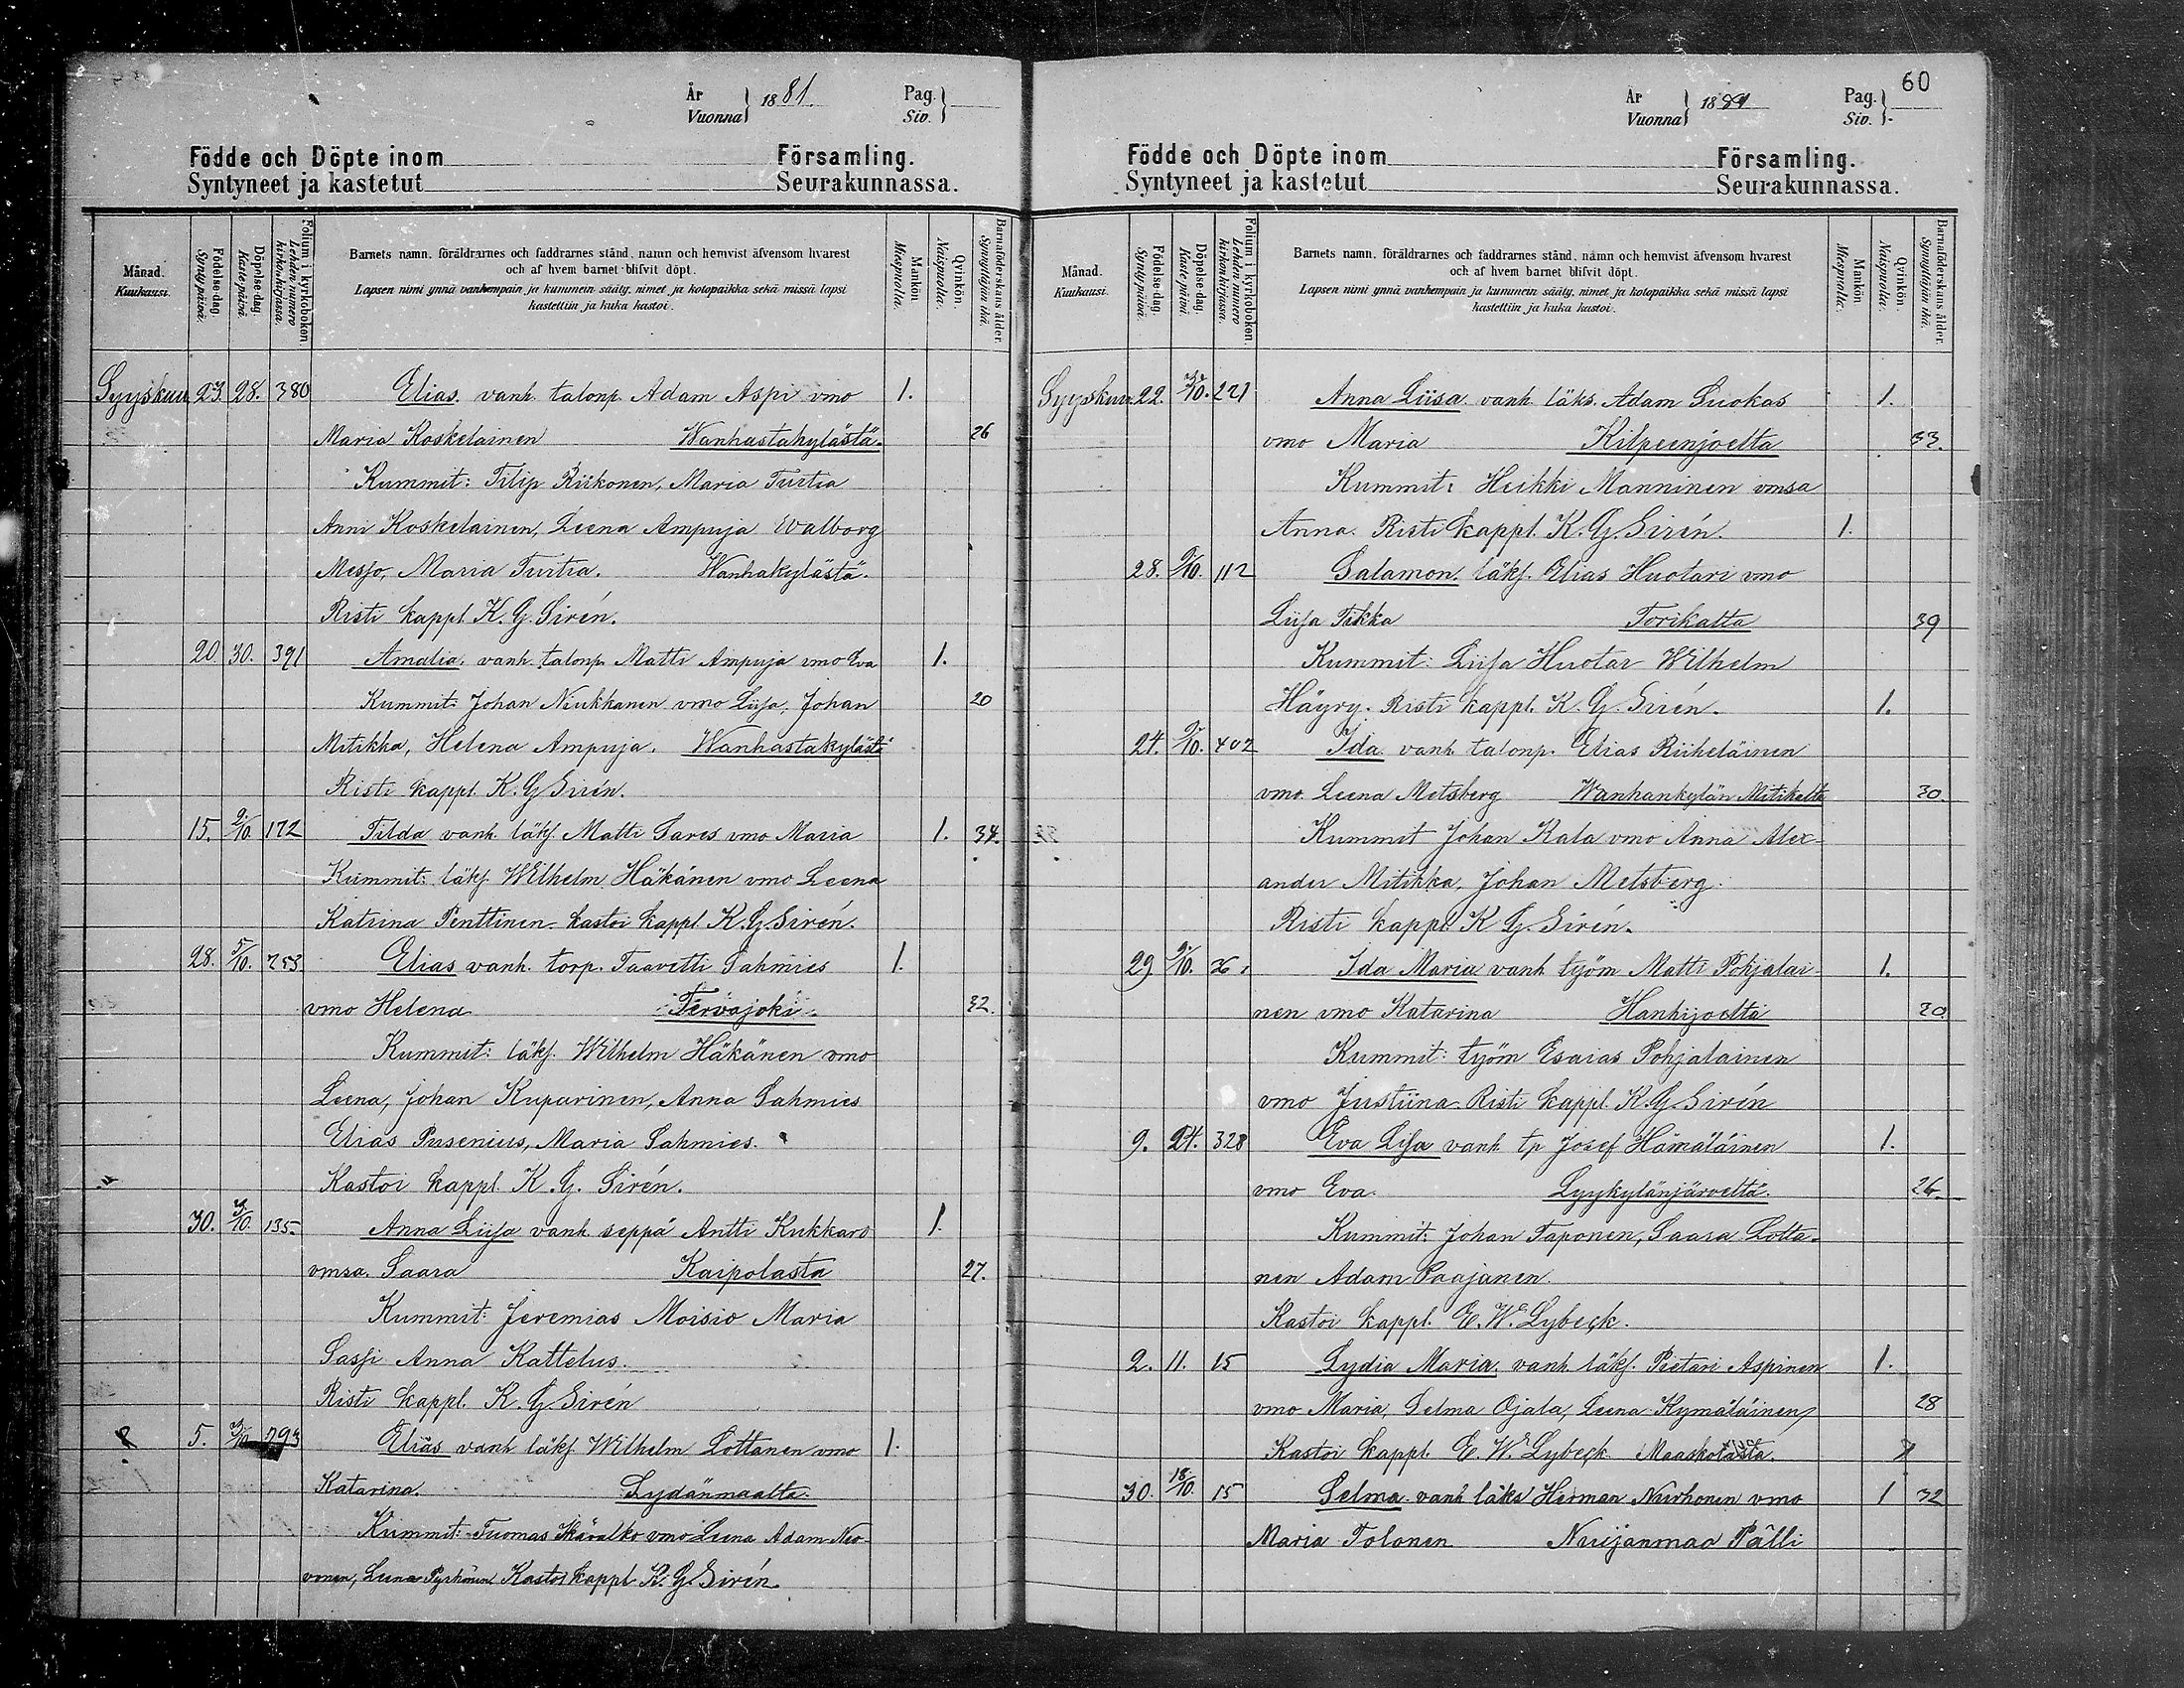 År
Vuonna } 1881.
Pag.
Siv. }
Födde och Döpte inom Församling.
Syntyneet ja kastetut Seurakunnassa.
Månad.
Kuukausi.
Födelse-dag.
Synty-päivä.
Döpelse-dag.
Kaste-päivä.
Folium i kyrkoboken
Lehden numero kirkonkirjassa.
Barnets namn, föräldrarnes och faddrarnes stånd, namn och hemvist äfvensom hvarest
och af hvem barnet blifvit döpt.
Lapsen nimi ynnä vanhempain ja kummein sääty, nimet ja kotopaikka sekä missä lapsi
kastettiin ja kuka kastoi.
Mankön
Miespuolta.
Qvinkön.
Naispuolta.
Barnaföderskans ålder.
Synnyttäjän ikä.
Syyskuu 23. 28. 380 Elias. vanh. talonp. Adam Aspi vmo 1.
Maria Koskelainen Wanhastakylästä. 26
Kummit: Filip Riikonen, Maria Turtia
Anni Koskelainen, Leena Ampuja Walborg
Messo, Maria Turtia. Wanhakylästä.
Risti kappl. K. G. Sirén.
20 30. 391 Amalia. vanh. talonp. Matti Ampuja vmo Eva 1.
Kummit: Johan Niukkanen vmo Liisa, Johan 20
Mitikka, Helena Ampuja. Wanhastakylästä
Risti kappl. K. G Sirén.
15. 9/10. 172 Tilda vanh. läks. Matti Sares vmo Maria 1. 34.
Kummit: läks. Wilhelm Häkänen vmo Leena
Katrina Penttinen. kastoi kappl. K. G. Sirén.
28. 5/10. 753 Elias vanh. torp. Taavetti Sahmies 1.
vmo Helena Tervajoki. 32.
Kummit: läks. Wilhelm Häkänen vmo
Leena, Johan Kuparinen, Anna Sahmies
Elias Pusenius, Maria Sahmies.
Kastoi kappl. K. G. Sirén.
30. 3/10. 135. Anna Liisa vanh. seppä Antti Kukkaro 1.
vmsa. Saara Kaipolasta 27.
Kummit: Jeremias Moisio Maria
Sassi Anna Kattelus.
Risti kappl. K. G. Sirén
5. 793 Elias vanh. läks. Wilhelm Lottanen vmo 1.
Katarina. Lydänmaalta.
Kummit: Tuomas vmo Leena Adam Neu-
vonen, Leena Pyrhönen Kastoi kappl. K. G. Sirén.
60
År
Vuonna } 1881
Pag.
Siv. }
Födde och Döpte inom Församling.
Syntyneet ja kastetut Seurakunnassa.
Månad.
Kuukausi.
Födelse-dag.
Synty-päivä.
Döpelse-dag.
Kaste-päivä.
Folium i kyrkoboken
Lehden numero kirkonkirjassa.
Barnets namn, föräldrarnes och faddrarnes stånd, namn och hemvist äfvensom hvarest
och af hvem barnet blifvit döpt.
Lapsen nimi ynnä vanhempain ja kummein sääty, nimet ja kotopaikka sekä missä lapsi
kastettiin ja kuka kastoi.
Mankön
Miespuolta.
Qvinkön.
Naispuolta.
Barnaföderskans ålder.
Synnyttäjän ikä.
Syyskuu 22. 221 Anna Liisa. vanh. läks. Adam Suokas 1.
vmo Maria Kilpeenjoelta 33.
Kummit: Heikki Manninen vmsa
Anna. Risti kappl. K. G. Sirén. 1.
28. 9/10. 112 Salamon. läks. Elias Huotari vmo
Liisa Tikka Torikatta 39
Kummit: Liisa Huotar Wilhelm
Häyry. Risti kappl. K. G. Sirén. 1.
24. 9/10. 402 Ida vanh. talonp. Elias Riiheläinen
vmo. Leena Metsberg Wanhankylän Mitikalta 30.
Kummit Johan Kala vmo Anna Alex-
ander Mitikka, Johan Metsberg.
Risti kappl. K G. Sirén.
29 9/10. Ida Maria vanh. työm Matti Pohjalai- 1.
nen vmo Katarina Hanhijoelta 20.
Kummit: työm Esaias Pohjalainen
vmo Justiina Risti kappl. K. G. Sirén
9. 24. 328 Eva Lisa vanh. tp Josef Hämäläinen 1.
vmo Eva. Lyykylänjärveltä. 26
Kummit: Johan Taponen, Saara Lotta-
nen Adam Paajanen.
Kastoi kappl. E. W. Lybeck.
2. 11. 15 Lydia Maria. vanh. läks. Pietari Aspinen 1.
vmo Maria, Selma Ojala, Leena Kymäläinen 28
Kastoi kappl. E. W. Lybeck Maaskolasta.
30. 18/10. 15 Selma. vanh läks Herman Nuvhonen vmo 1 32
Maria Tolonen Nuijanmaa Pälli